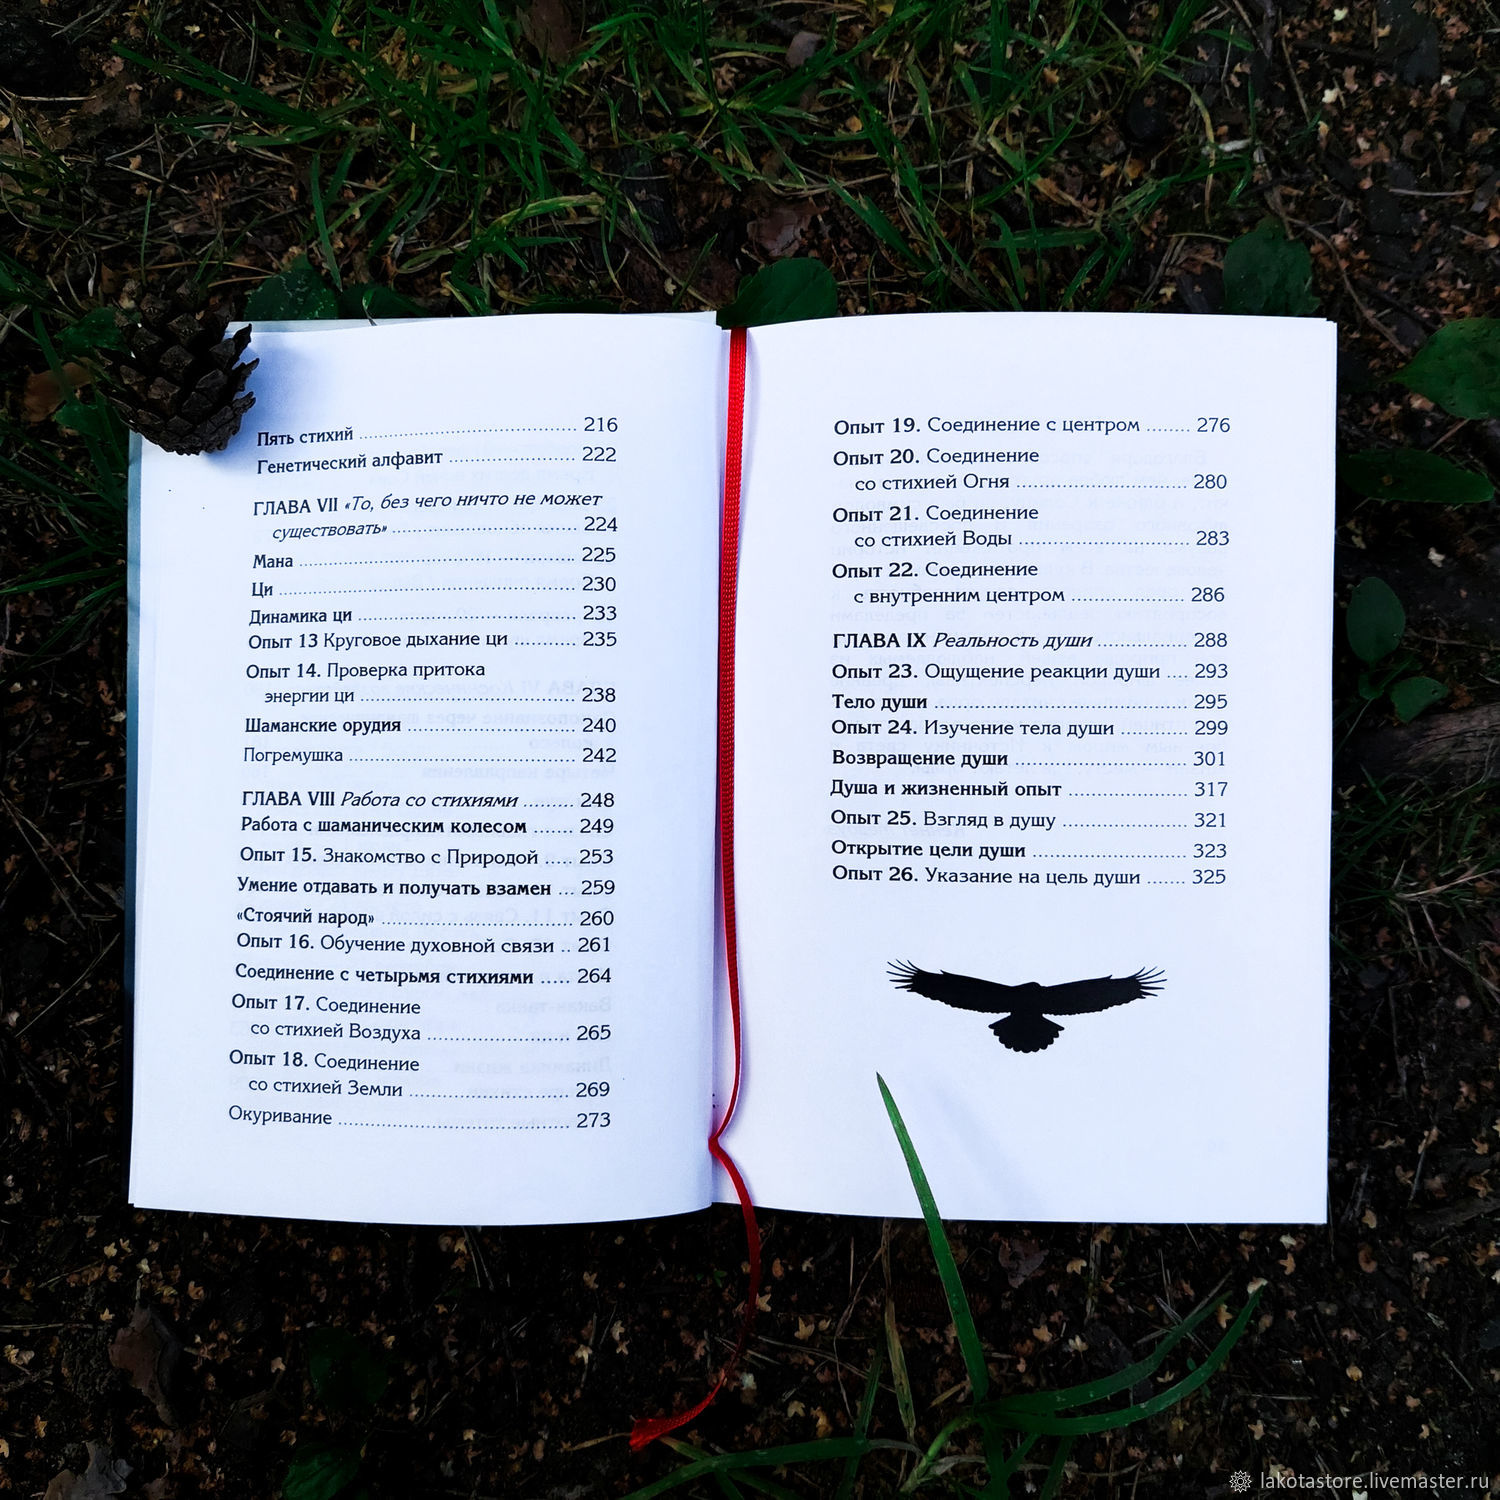 Пять стихий ........ 216
Генетический алфавит ........ 222
ГЛАВА VII «То, без чего ничто не может
существовать» ........ 224
Мана ........ 225
Ци ........ 230
Динамика ци ........ 233
Опыт 13 Круговое дыхание ци ........ 235
Опыт 14. Проверка притока
энергии ци ........ 238
Шаманские орудия ........ 240
Погремушка ........ 242
ГЛАВА VIII Работа со стихиями ........ 248
Работа с шаманическим колесом ....... 249
Опыт 15. Знакомство с Природой ..... 253
Умение отдавать и получать взамен ... 259
«Стоячий народ» ........ 260
Опыт 16. Обучение духовной связи .. 261
Соединение с четырьмя стихиями ..... 264
Опыт 17. Соединение
со стихией Воздуха ........ 265
Опыт 18. Соединение
со стихией Земли ........ 269
Окуривание ........ 273
Опыт 19. Соединение с центром ........ 276
Опыт 20. Соединение
со стихией Огня ........ 280
Опыт 21. Соединение
со стихией Воды ........ 283
Опыт 22. Соединение
с внутренним центром ........ 286
ГЛАВА IX Реальность души ........ 288
Опыт 23. Ощущение реакции души .... 293
Тело души ........ 295
Опыт 24. Изучение тела души ........ 299
Возвращение души ........ 301
Душа и жизненный опыт ........ 317
Опыт 25. Взгляд в душу ........ 321
Открытие цели души ........ 323
Опыт 26. Указание на цель души ....... 325
lakotastore.livemaster.ru